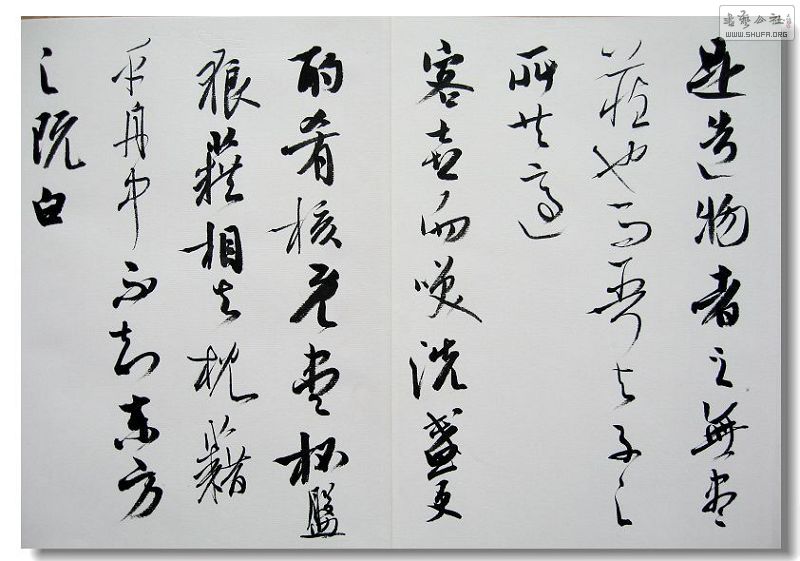 是造物者之無盡
藏也而吾与子之
所共適
客喜而咲洗盞更
酌肴核既盡杯盤
狼藉相与枕藉
乎舟中不知东方
之既白
書藝公社
WWW.SHUFA.ORG